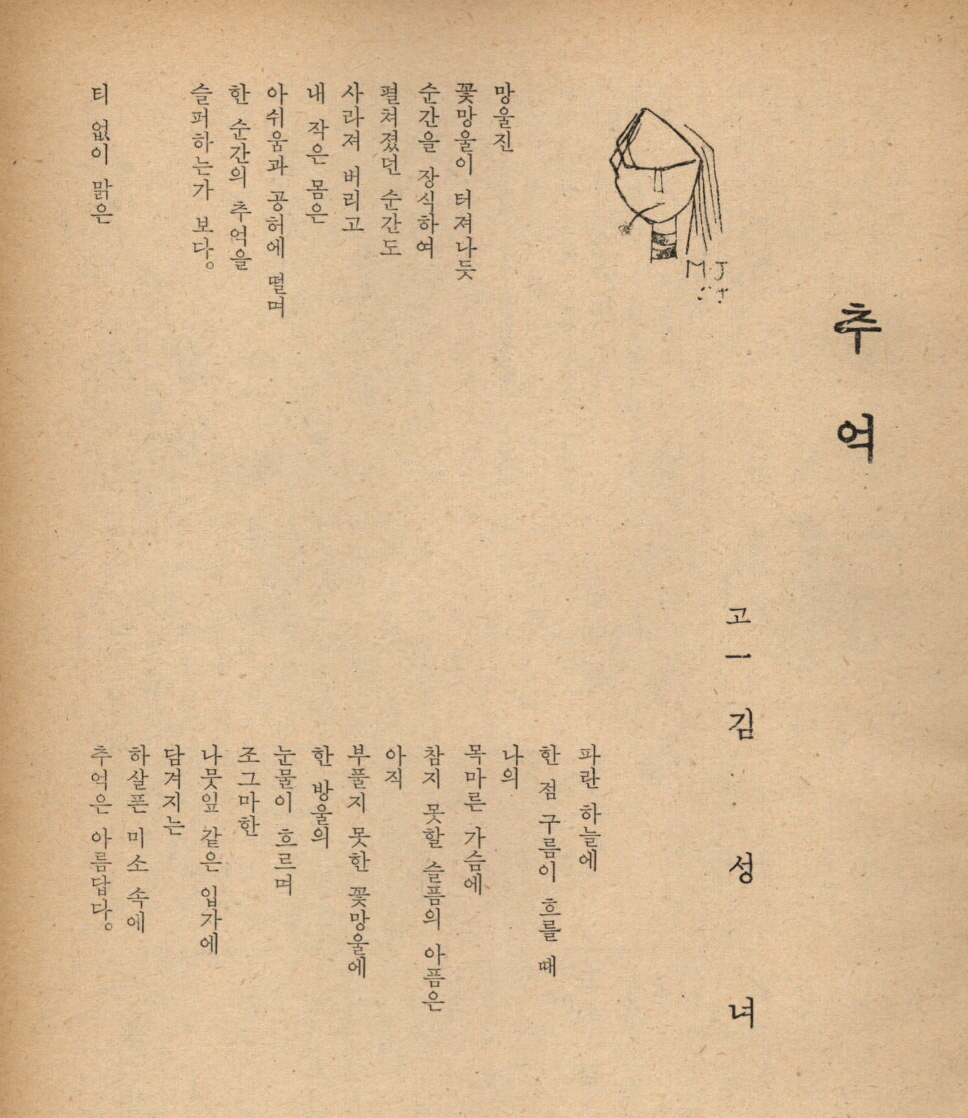 추억
고一 김성녀
망울진
꽃망울이 터져나듯
순간을 장식하여
펼쳐졌던 순간도
사라져 버리고
내 작은 몸은
아쉬움과 공허에 떨며
한 순간의 추억을
슬퍼하는가 보다。
티 없이 맑은
파란 하늘에
한 점 구름이 흐를 때
나의
목마른 가슴에
참지 못할 슬픔의 아픔은
아직
부풀지 못한 꽃망울에
한 방울의
눈물이 흐르며
조그마한
나뭇잎 같은 입가에
담겨지는
하살픈 미소 속에
추억은 아름답다。
M J